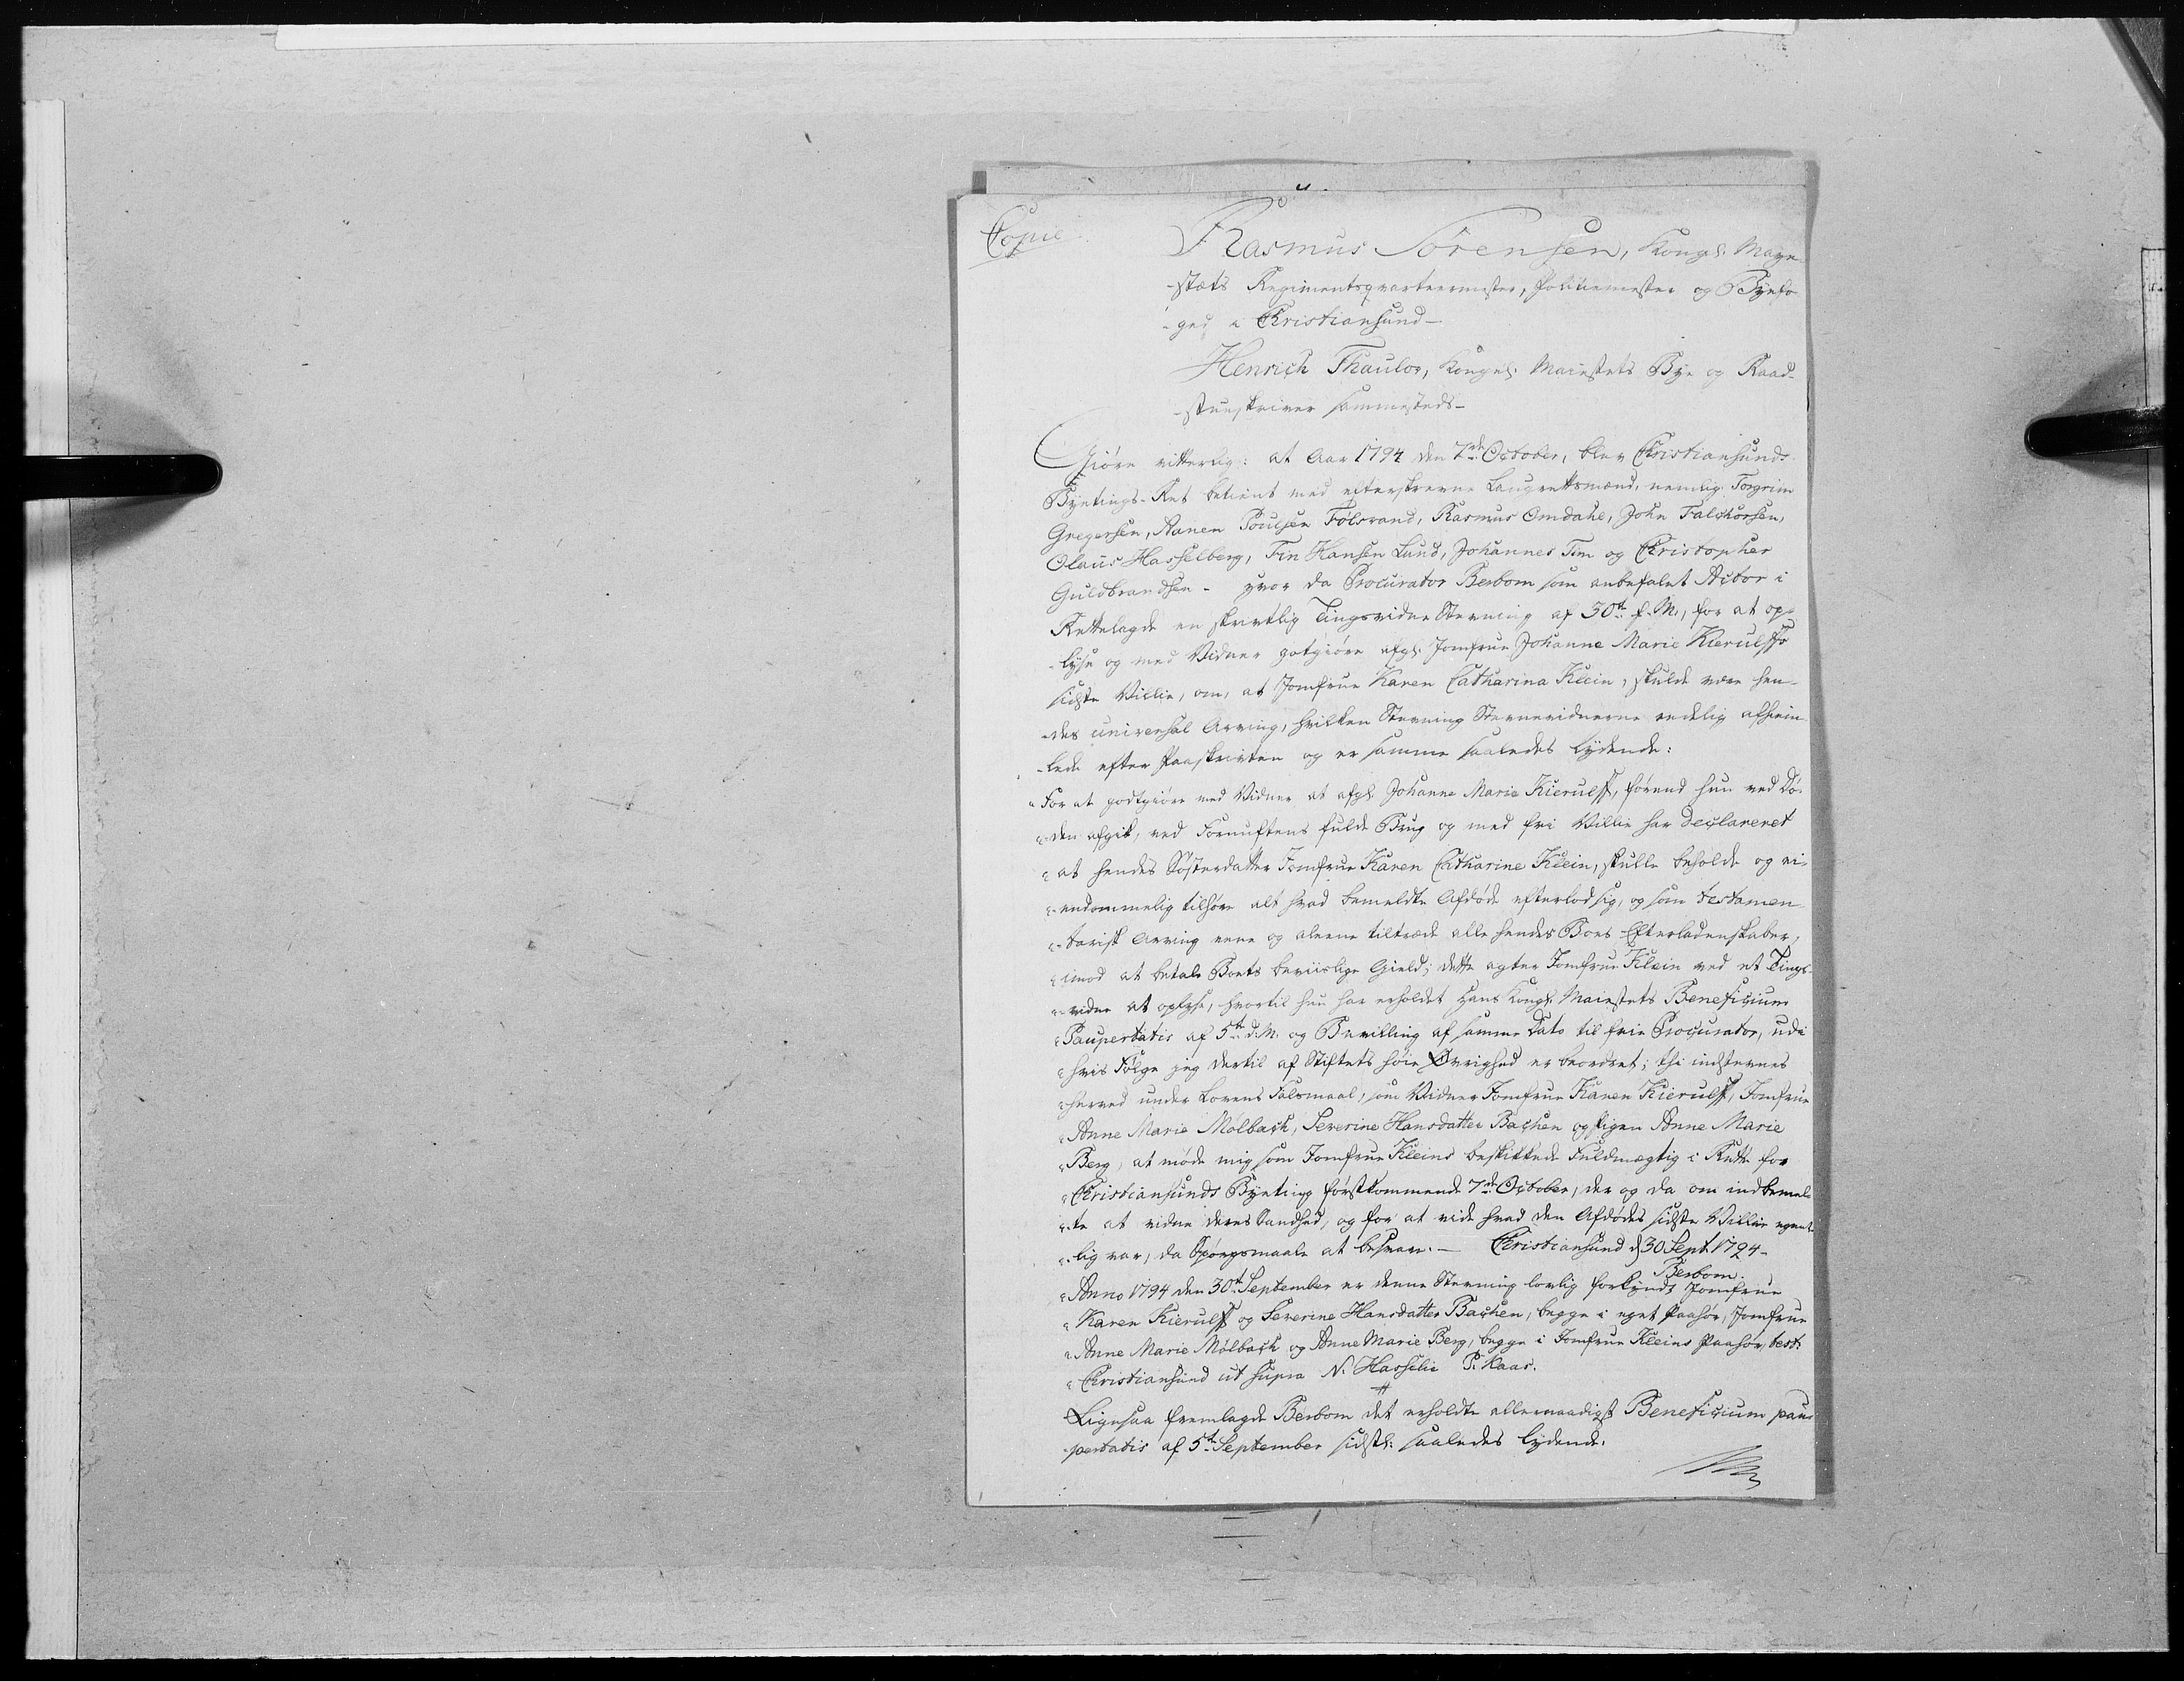 Copie
Rasmus Sörensen, Kongl: Maye
-stæts Regimentsqvarteermester, Politiemester og Byefo
-ged i Christiansund-
Henrich Thaulow, Kongel: Maiestets Bye og Raad-
-stueskriver sammesteds-
Giøre vitterlig: at Aar 1794 den 7de October, blev Christiansunds
Byetings-Ret betient med efterskrevne Laugrettsmænd, nemlig: Torgrim
Gregersen, Aanen Poulsen Følsvand, Rasmus Omdahl, John Falchorsen,
Olaus Hasselberg, Fin Hansen Lund, Johannes Tim og Christopher
Guldbrandsen - hvor da Procurator Besbom som anbefalet Actor i
Rettelagde en skrivtlig Tingsvidne Stevning af 30te f. M., for at op-
-lyse og med Vidner gotgiøre afgl: Jomfrue Johanne Marie Kierulffs
sidste Villie, om, at Jomfrue Karen Catharina Klein, skulde være hen-
-des universal Arving, hvilken Stevning Stevnevidnerne eedelig afhiem-
-lede efter Paaskrivten og er samme saaledes lydende:
"For at godtgiøre med Vidner at afgl: Johanne Marie Kierulff, førend hun ved Dø-
"-den afgik, ved Fornuftens fulde Brug og med fri Villie har declareret
"at hendes Søsterdatter Jomfrue Karen Catharine Klein, skulle beholde og ei-
"-endommelig tilhøre alt hvad bemeldte Afdøde efterlod sig, og som testamen-
"-tarisk Arving eene og aleene tiltræde alle hendes Boes Efterladenskaber,
"imod at betale Boets beviislige Gield; dette agter Jomfrue Klein ved et Tings-
"-vidne at oplyse, hvortil hun har erholdet Hans Kongl: Maiestets Beneficium
"Paupertatis af 5te d. M. og Bevilling af samme Dato til frie Procurator, udi
"hvis Følge jeg dertil af Stiftets høie Øvrighed er beordret; thi indstevnes
"herved under Lovens Falsmaal, som Vidner Jomfrue Karen Kierulff, Jomfrue
"Anne Marie Mölbach, Severine Hansdatter Bachen og Pigen Anne Marie
"Berg, at møde mig som Jomfrue Kleins beskikkede Fuldmægtig i Rette for
"Christiansunds Byeting førstkommende 7de October, der og da om indbemel-
"-te at vidne deres Sandhed, og for at vide hvad den Afdødes sidste Villie egent-
"-lig var, da Spörgsmaale at besvare. - Christiansund d 30 Sept. 1794-
Besbom.
"Anno 1794 den 30te September er denne Stevning lovlig forkyndt Jomfrue
"Karen Kierulff og Severine Hansdatter Bachen, begge i eget Paahør, Jomfrue
"Anne Marie Mölbach og Anne Marie Berg, begge i Jomfrue Kleins Paahør, test:
"Christiansund ut supra N. Hasselie P. Kaas.
Ligesaa fremlagde Besbom det erholdte allernaadigst Beneficium pau-
-pertatis af 5te September sidstl: saaledes lydende.